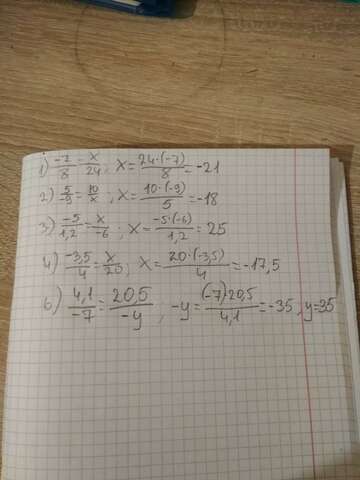 1) -7/8 = x/24 ; x = 24·(-7)/8 = -21
2) 5/-9 = 10/x ; x = 10·(-9)/5 = -18
3) -5/1,2 = x/-6 ; x = -5·(-6)/1,2 = 25
4) -3,5/4 = x/20 ; x = 20·(-3,5)/4 = -17,5
6) 4,1/-7 = 20,5/-y ; -y = (-7)·20,5/4,1 = -35 , y=35